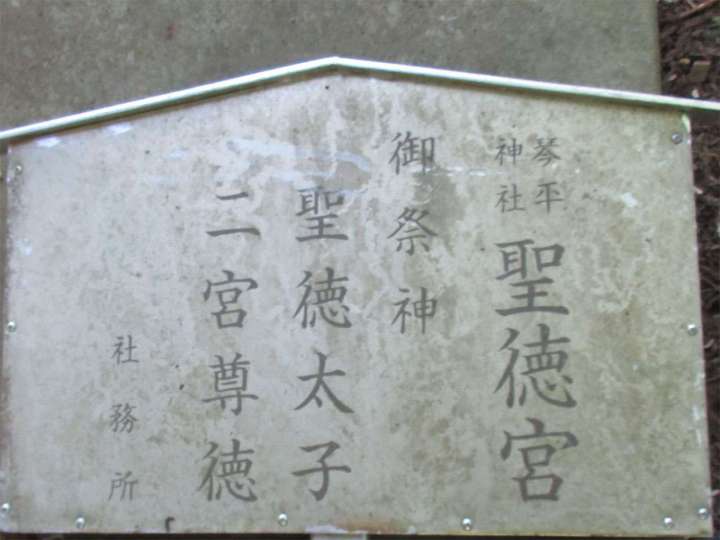 琴平
神社
聖徳宮
御祭神
聖徳太子
二宮尊徳
社務所